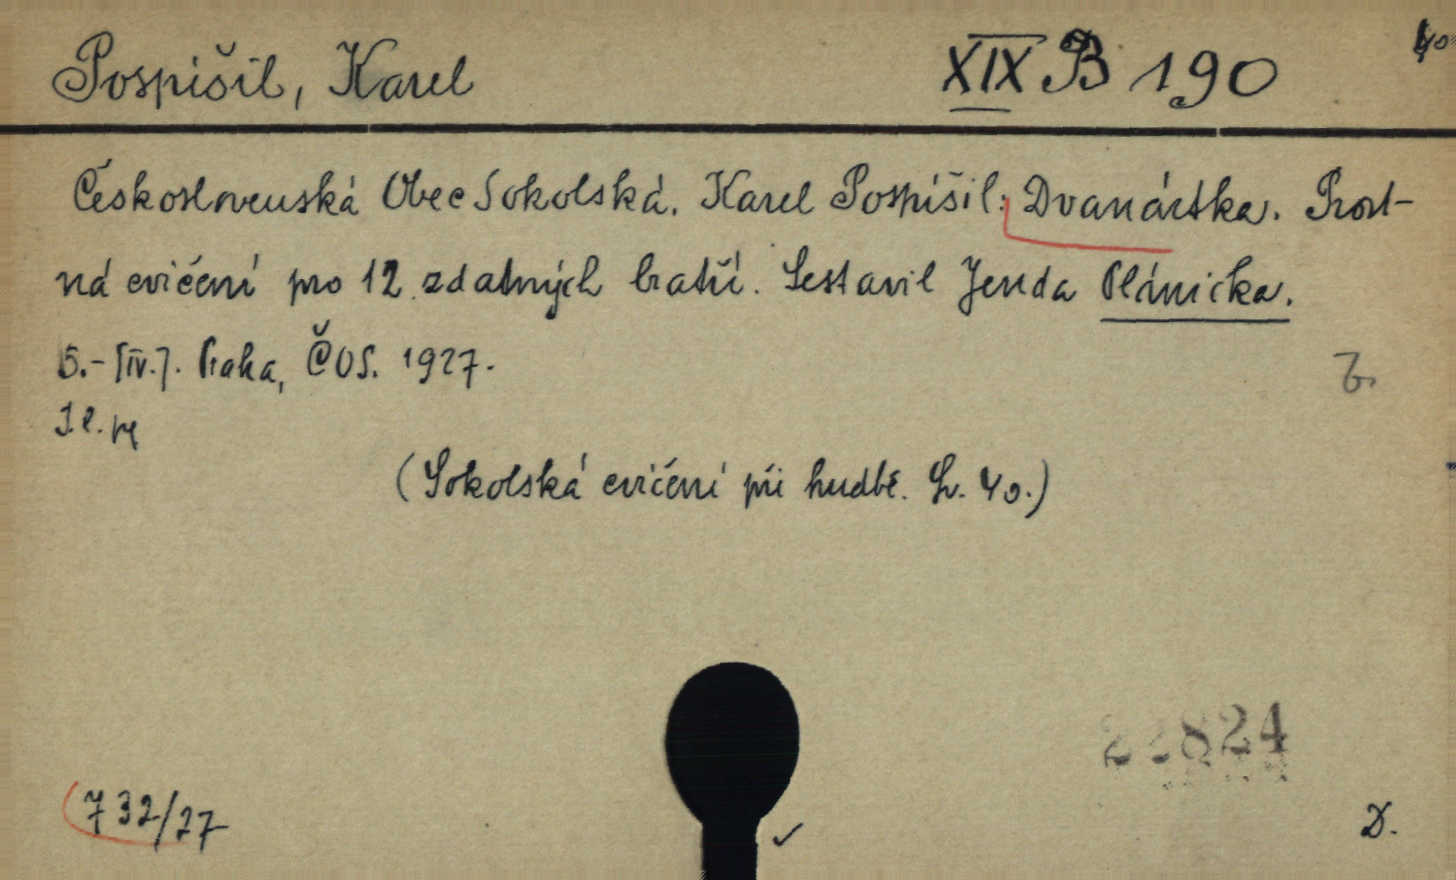 Pospíšil, Karel XIX B 190 40
Československá Obec Sokolská. Karel Pospíšil: Dvanáctka. Prost-
ná cvičení pro 12 zdatných bratří. Sestavil Jenda Plánička.
5.-[IV.]. Praha, ČOS. 1927.
(Sokolská cvičení při hudbě. Sv. 40.)
22824
732/27
D.